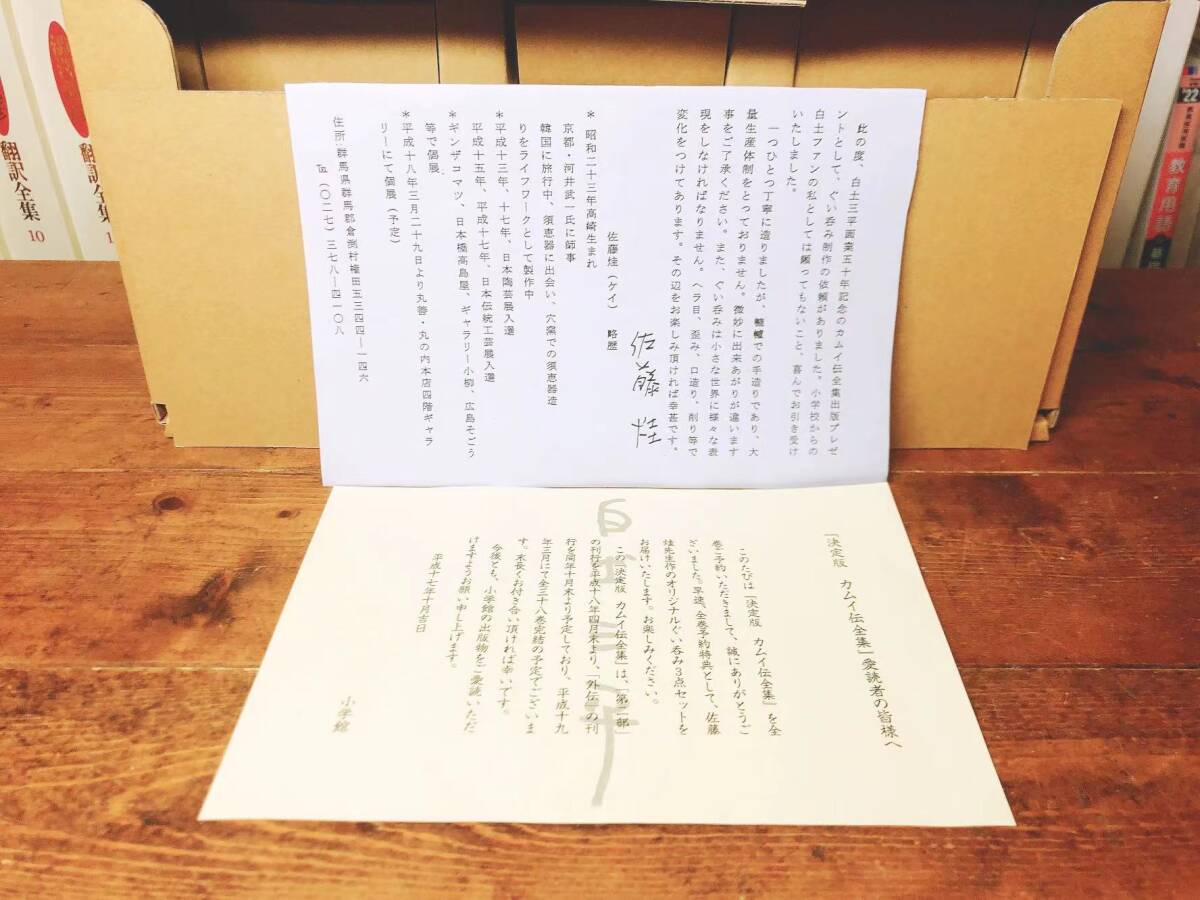 此の度、白土三平画業五十年記念のカムイ伝全集出版プレゼ
ントとして、ぐい呑み制作の依頼がありました。小学校からの
白土ファンの私としては願ってもないこと、喜んでお引き受け
いたしました。
一つひとつ丁寧に造りましたが、轆轤での手造りであり、大
量生産体制をとっておりません。微妙に出来あがりが違います
事をご了承ください。また、ぐい呑みは小さな世界に様々な表
現をしなければなりません。ヘラ目、歪み、口造り、削り等で
変化をつけてあります。その辺をお楽しみ頂ければ幸甚です。
佐藤烓
佐藤烓（ケイ） 略歴
＊ 昭和二十三年高崎生まれ
京都・河井武一氏に師事
韓国に旅行中、須恵器に出会い、穴窯での須恵器造
りをライフワークとして製作中
＊平成十三年、十七年、日本陶芸展入選
平成十五年、平成十七年、日本伝統工芸展入選
＊ギンザコマツ、日本橋高島屋、ギャラリー小柳、広島そごう
等で個展
＊平成十八年三月二十九日より丸善・丸の内本店四階ギャラ
リーにて個展（予定）
住所：群馬県群馬郡倉渕村権田五三四四―一四六
℡（〇二七）三七八―四一〇八
「決定版 カムイ伝全集」愛読者の皆様へ
このたびは「決定版 カムイ伝全集」を全
巻ご予約いただきまして、誠にありがとうご
ざいました。早速、全巻予約特典として、佐藤
烓先生作のオリジナルぐい呑み3点セットを
お届けいたします。お楽しみください。
この「決定版 カムイ伝全集」は、「第二部」
の刊行を平成十八年四月末より、「外伝」の刊
行を同年十月末より予定しており、平成十九
年三月にて全三十八巻完結の予定でございま
す。末長くお付き合い頂ければ幸いです。
今後とも、小学館の出版物をご愛読いただ
けますようお願い申し上げます。
平成十七年十月吉日
小学館
白土三平
翻訳全集
10
翻訳全集
1
'22
教育用語